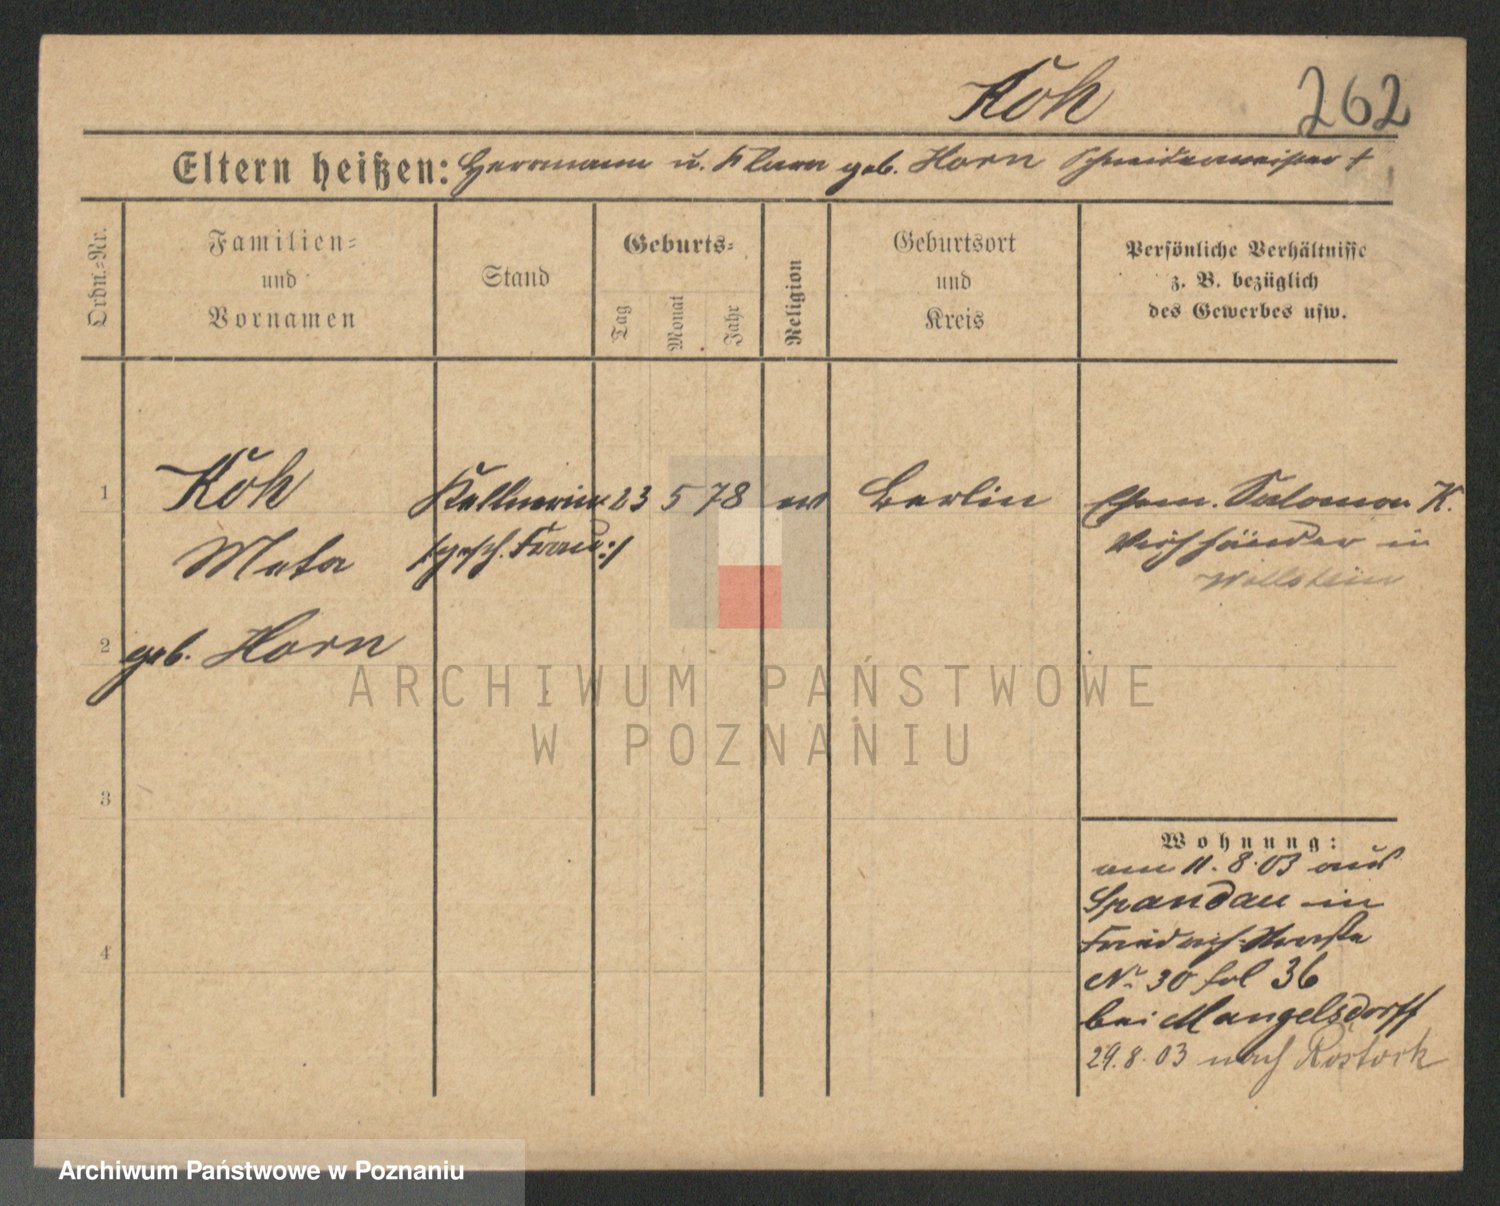 Koh 262
Eltern heißen: Herrmann u. Klara geb. Horn Schneidermeister †
Ordn.-Nr.
Familien-
und
Vornamen
Stand
Geburts-
Tag
Monat
Jahr
Religion
Geburtsort
und
Kreis
Persönliche Verhältnisse
z. B. bezüglich
des Gewerbes usw.
1 Koh Kellnerin 23 5 78 ev Berlin Ehem. Salomon K.
Meta /:gesch. Frau:/ Viehhändler in
Wollstein
2 geb. Horn
3
4
Wohnung:
am 11.8.03 aus
Spandau in
Friedrich-Straße
No 30 fol 36
bei Mangelsdorff
29.8.03 nach Rostock
ARCHIWUM PAŃSTWOWE
W POZNANIU
Archiwum Państwowe w Poznaniu